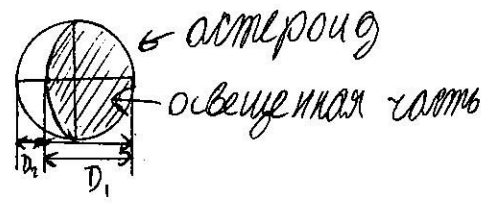 астероид
освещенная часть
D₂
D₁